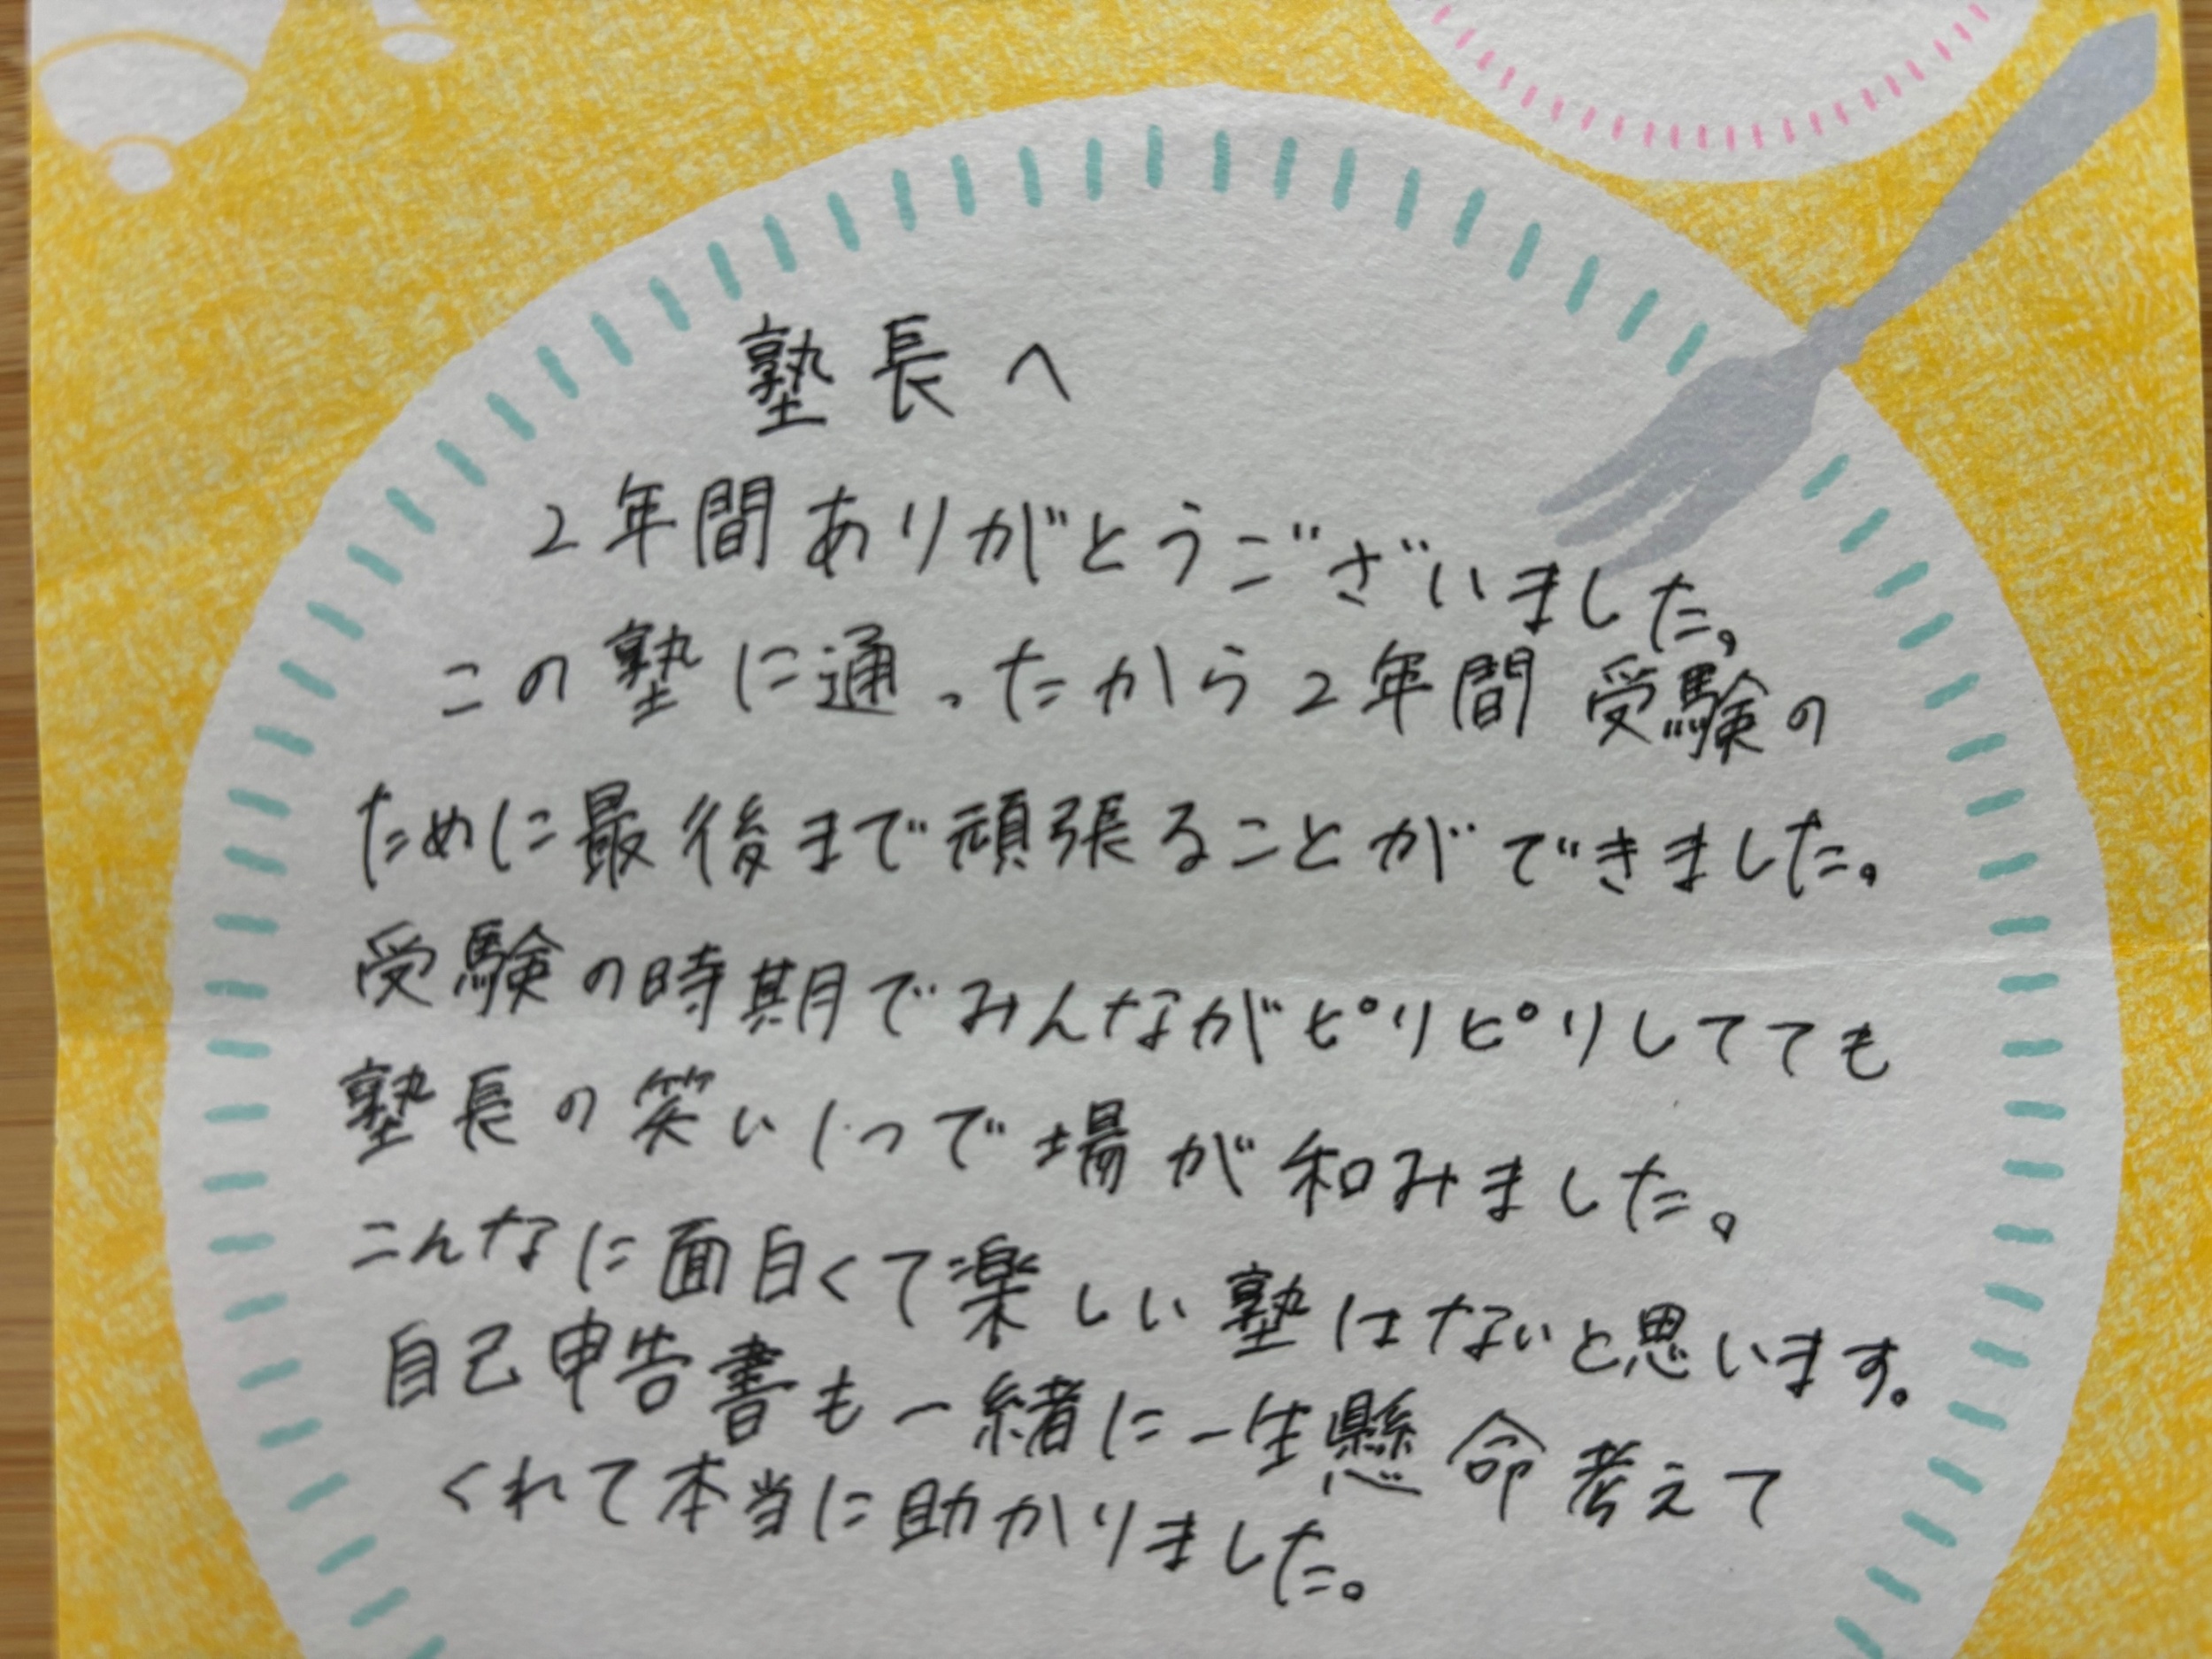 塾長へ
2年間ありがとうございました。
この塾に通ったから2年間受験の
ために最後まで頑張ることができました。
受験の時期でみんながピリピリしてても
塾長の笑い1つで場が和みました。
こんなに面白くて楽しい塾はないと思います。
自己申告書も一緒に一生懸命考えて
くれて本当に助かりました。